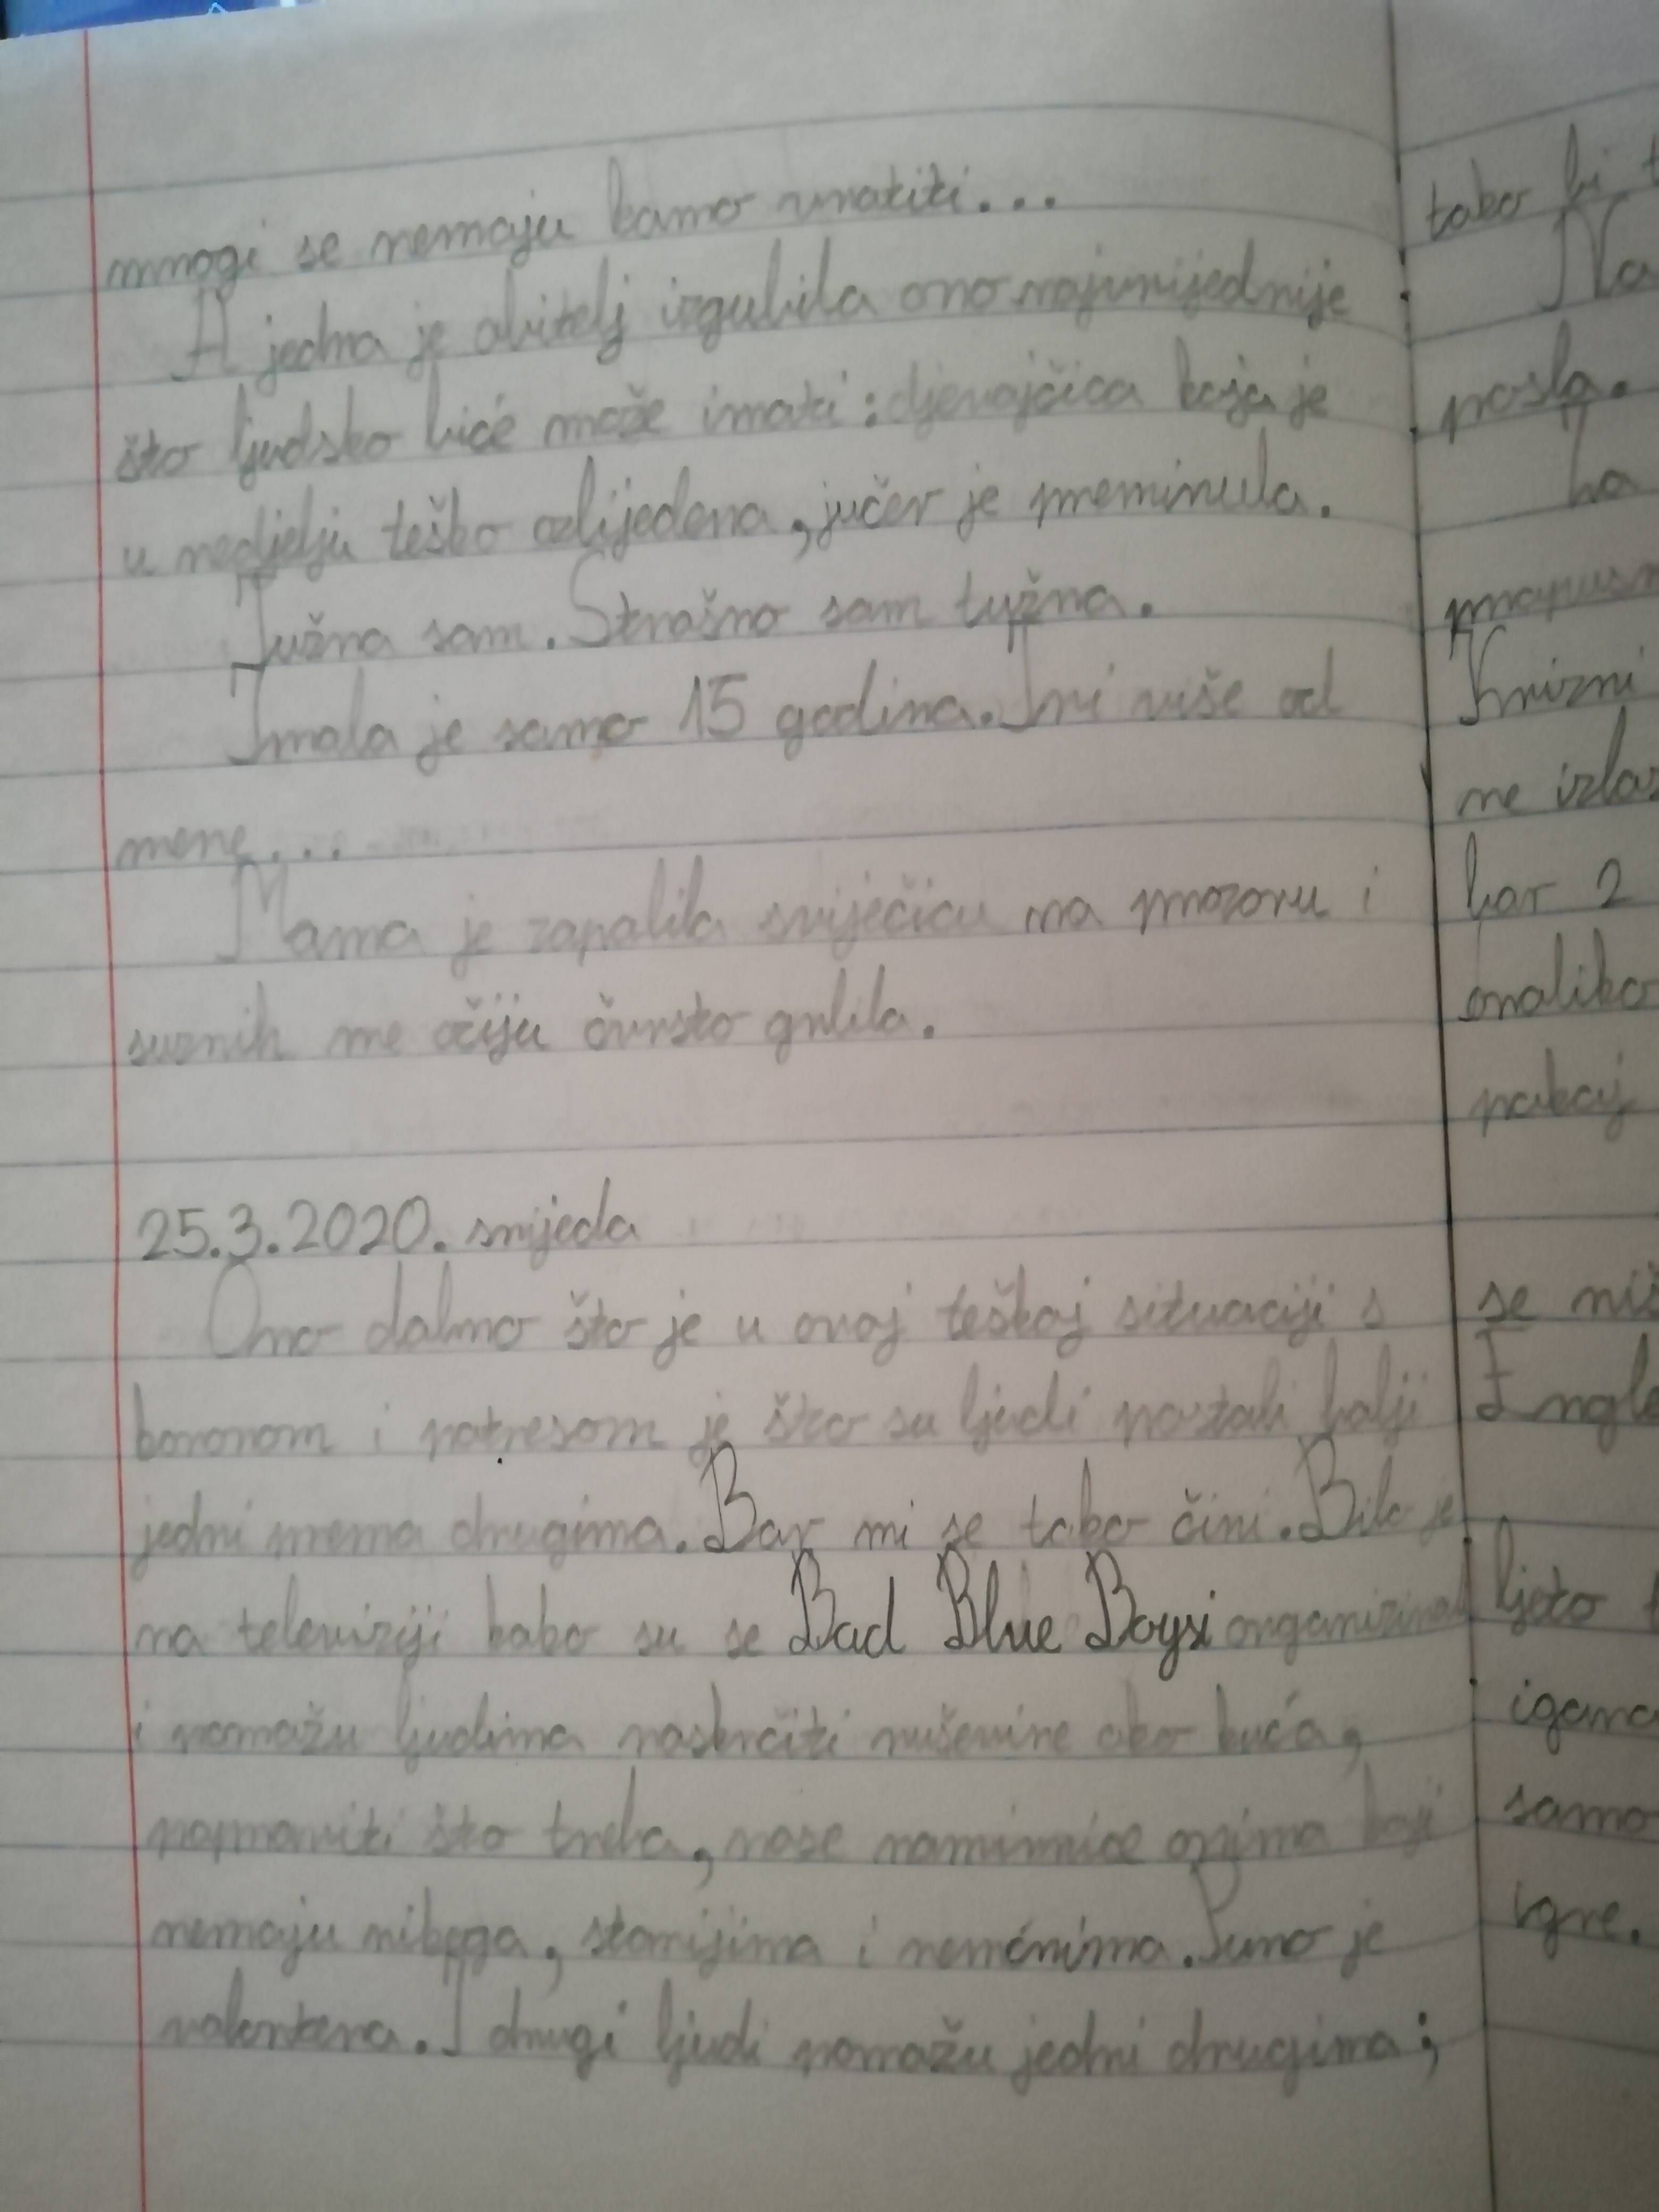 mnogi se nemaju kamo vratiti...
A jedna je obitelj izgubila ono najvrijednije
što ljudsko biće može imati: djevojčica koja je
u nedjelju teško ozlijeđena, jučer je preminula.
Tužna sam. Strašno sam tužna.
Imala je samo 15 godina. Tri više od
mene...
Mama je zapalila svijećicu na prozoru i
suznih me očiju čvrsto grlila.
25.3.2020. srijeda
Ono dobro što je u ovoj teškoj situaciji s
koronom i potresom je što su ljudi postali bolji
jedni prema drugima. Bar mi se tako čini. Bilo je
na televiziji kako su se Bad Blue Boysi organizirali
i pomažu ljudima raskrčiti ruševine oko kuća,
popraviti što treba, nose namirnice onima koji
nemaju nikoga, starijima i nemoćnima. Puno je
volontera. I drugi ljudi pomažu jedni drugima;
tako bi
Na
posla.
ha
Krizni
ne izlaz
bar 2
onoliko
pokoj
se niš
Engle
ljeto
igara
samo
igre.